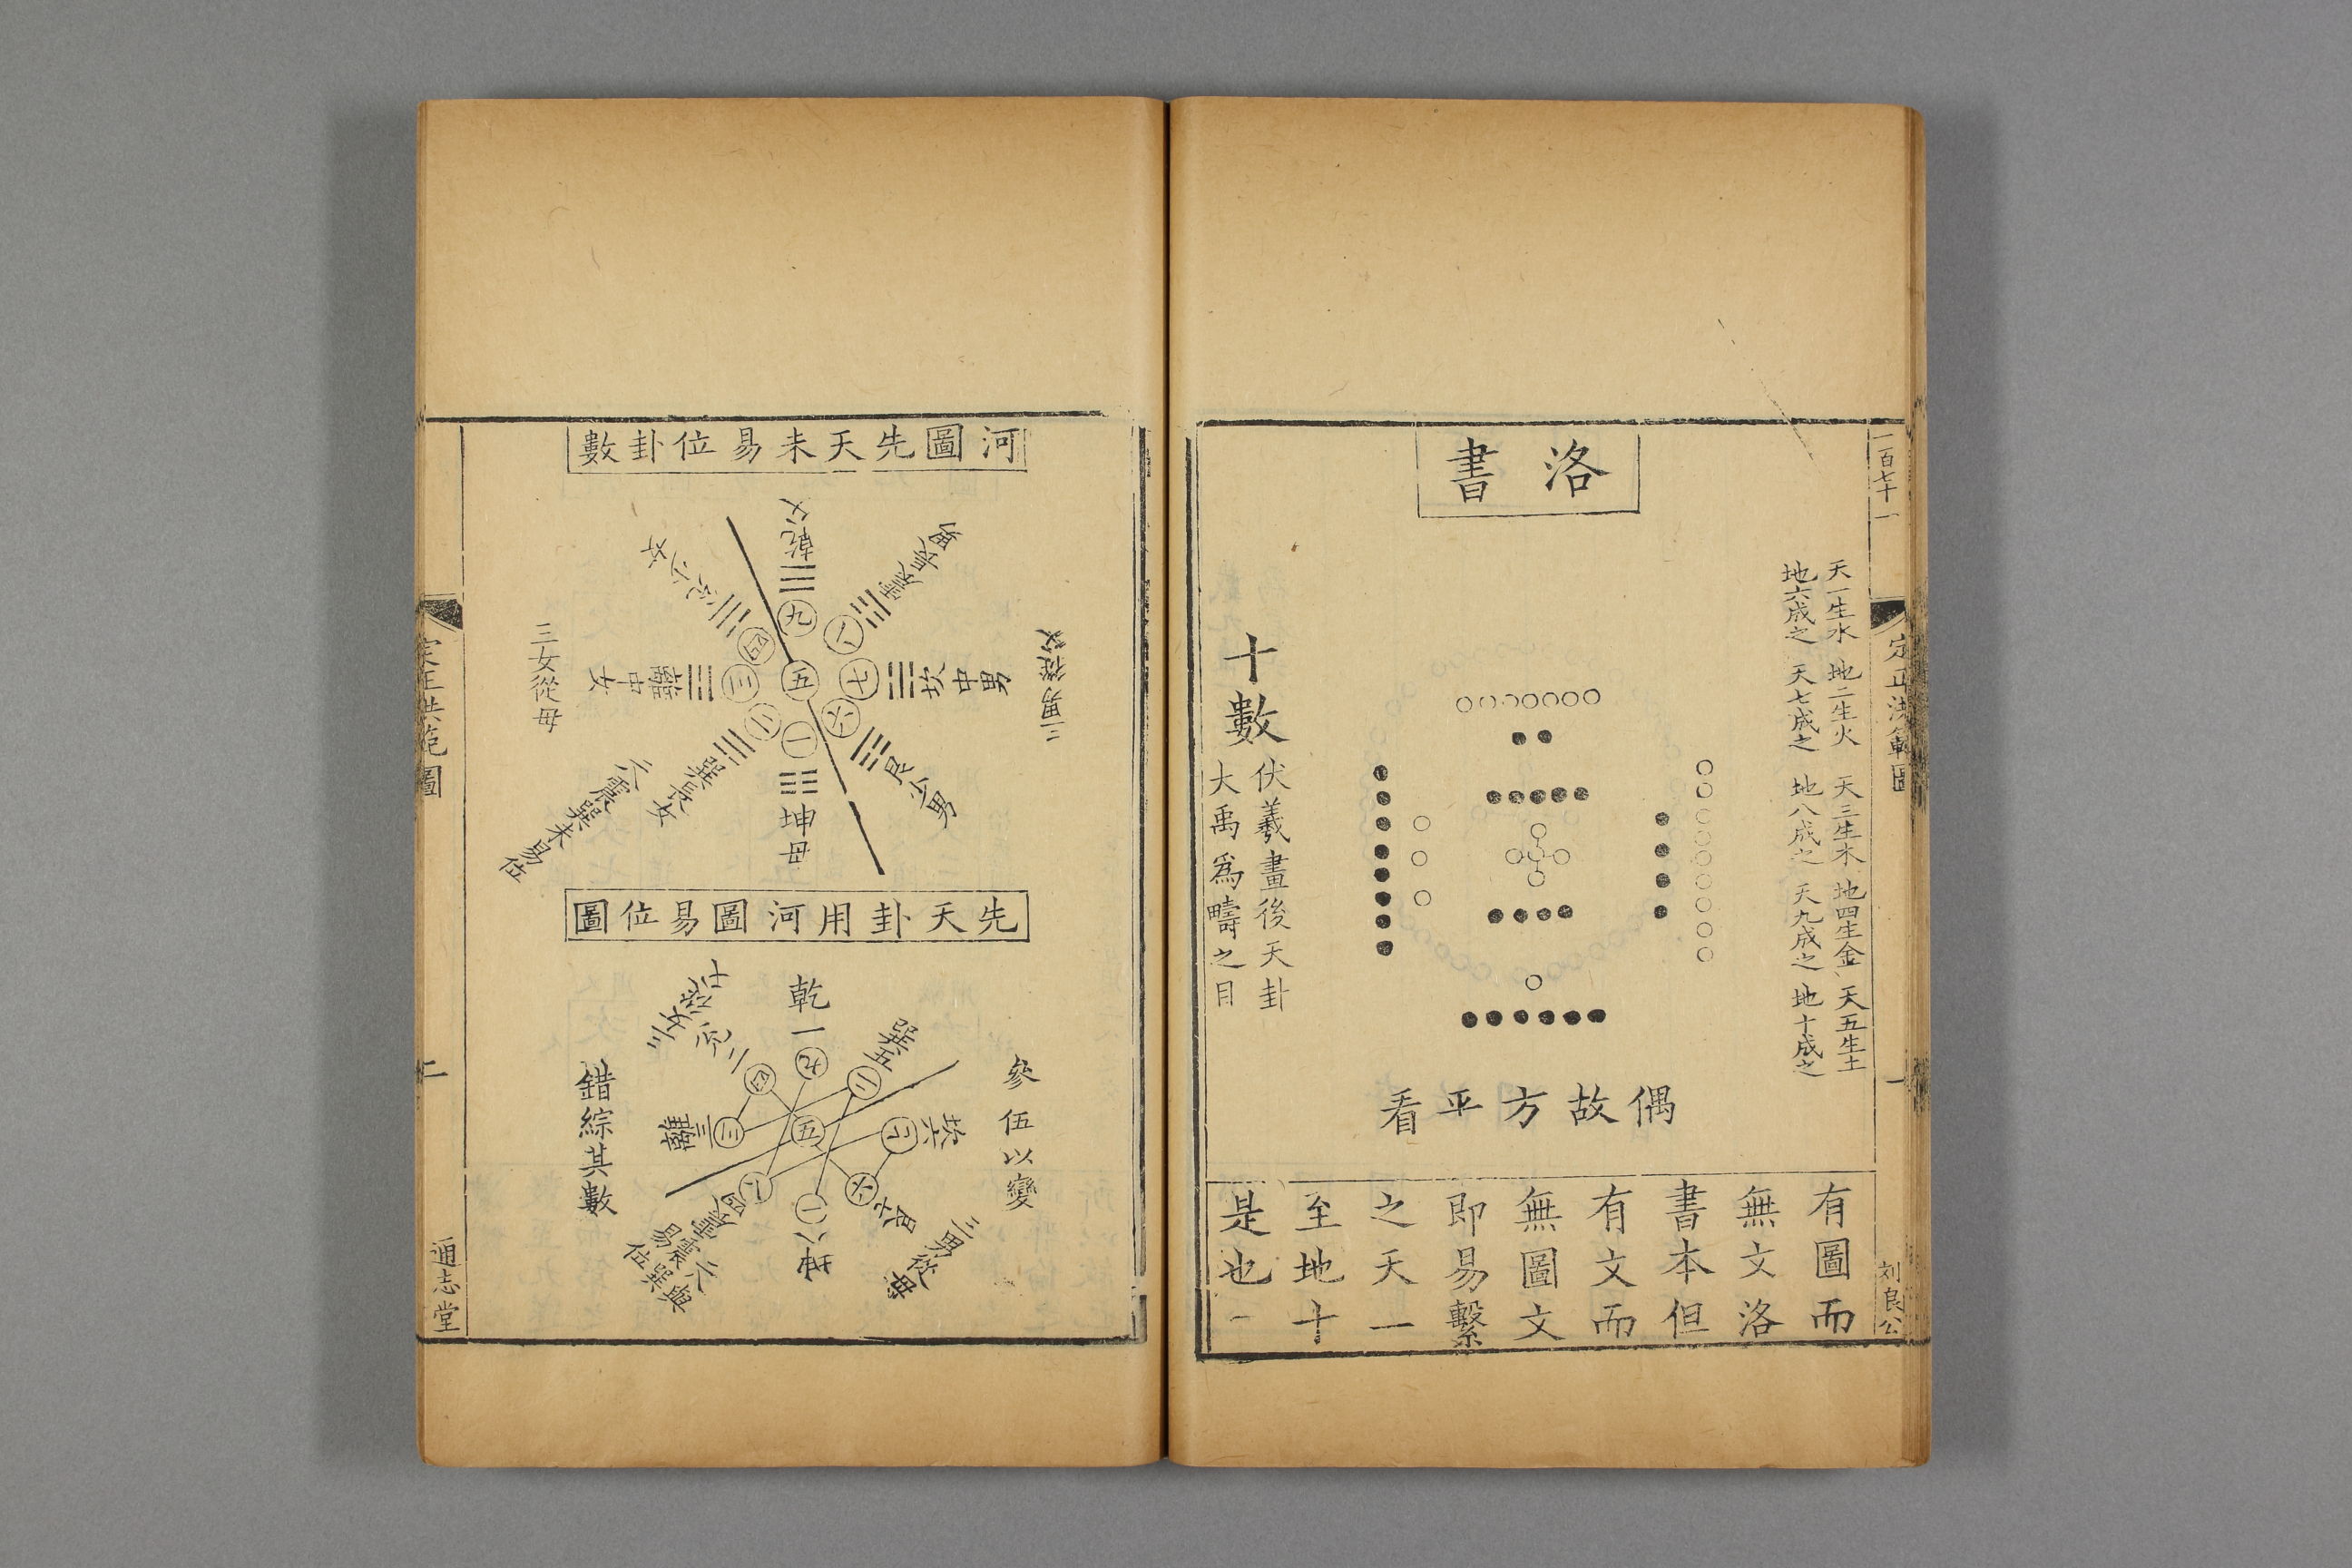 一百七十一
定正洪範圖
一
刘良公
洛書
天一生水
地六成之
地二生火
天七成之
天三生木
地八成之
地四生金
天九成之
天五生土
地十成之
十數
伏羲畫後天卦
大禹爲疇之目
偶故方平看
有圖而
無文洛
書本但
有文而
無圖文
即易繫
之天一
至地十
是也
河圖先天未易位卦數
乾父
九
震長男
八
坎中男
七
艮少男
六
坤母
一
巽長女
二
離中女
三
兌少女
四
五
三男從父
三女從母
六震巽未易位
先天卦用河圖易位圖
乾一
九
巽五
二
坎六
七
艮七
六
坤八
一
震四
八
離三
三
兌二
四
五
參伍以變
錯綜其數
三男從母
易位
定正洪範圖
二
通志堂